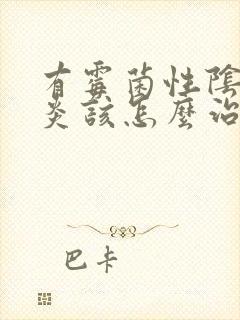 有霉菌性陰
炎該怎麼治
巴卡